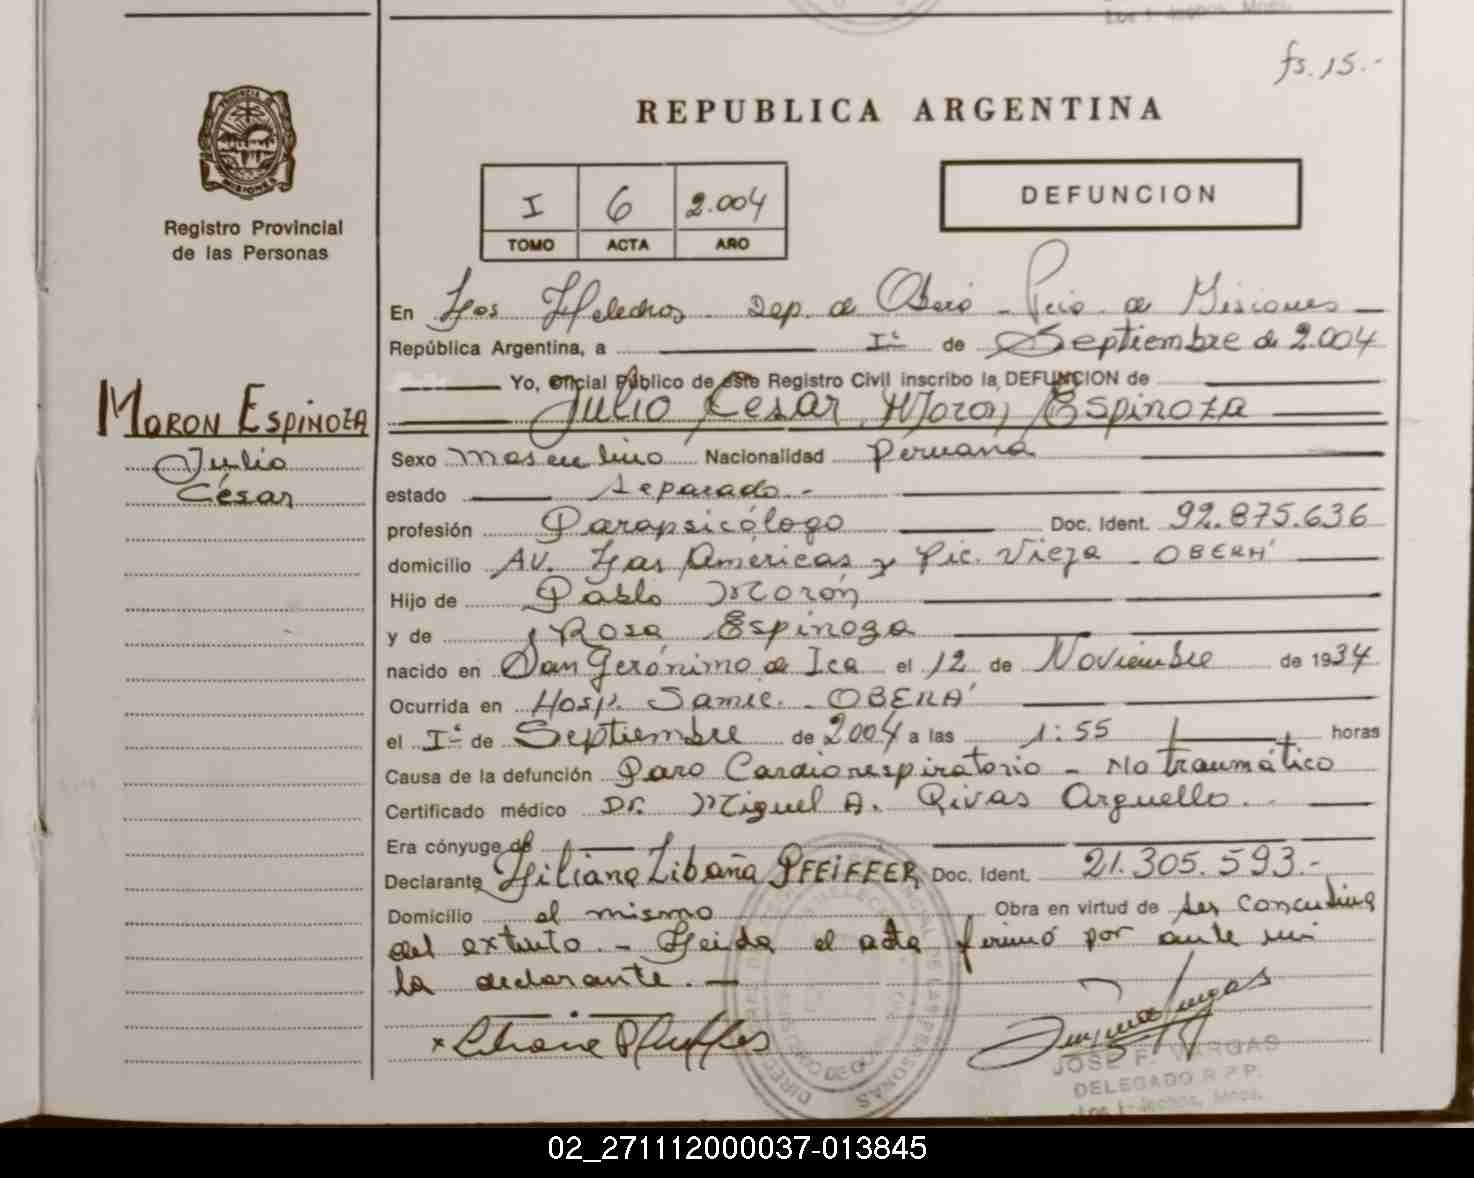 fs. 15.-
REPUBLICA ARGENTINA
PROVINCIA DE
MISIONES
Registro Provincial
de las Personas
I 6 2.004
TOMO ACTA AÑO
DEFUNCION
En Los Helechos - Dep. de Oberá - Pcia. de Misiones
República Argentina, a I° de Septiembre de 2.004
Yo, Oficial Público de este Registro Civil inscribo la DEFUNCION de
Julio César Morón Espinoza
MORON ESPINOZA
Julio
César
Sexo masculino Nacionalidad Peruana
estado separado.-
profesión Parapsicólogo Doc. Ident. 92.875.636
domicilio AV. Las Américas y Pic. Vieja - OBERÁ
Hijo de Pablo Morón
y de Rosa Espinoza
nacido en San Gerónimo de Ica el 12 de Noviembre de 1934
Ocurrida en Hosp. Samic. - OBERÁ
el I° de Septiembre de 2004 a las 1:55 horas
Causa de la defunción Paro Cardiorespiratorio - No traumático
Certificado médico Dr. Miguel A. Rivas Arguello.
Era cónyuge de
Declarante Liliana Libaña PFEIFFER Doc. Ident. 21.305.593.-
Domicilio el mismo Obra en virtud de ser concubina
del extinto. - Leida el acta firmó por ante mi
la declarante. -
x Liliana Pfeiffer
JOSE F. VARGAS
DELEGADO R.P.P.
Los Helechos, Mnes.
02_271112000037-013845